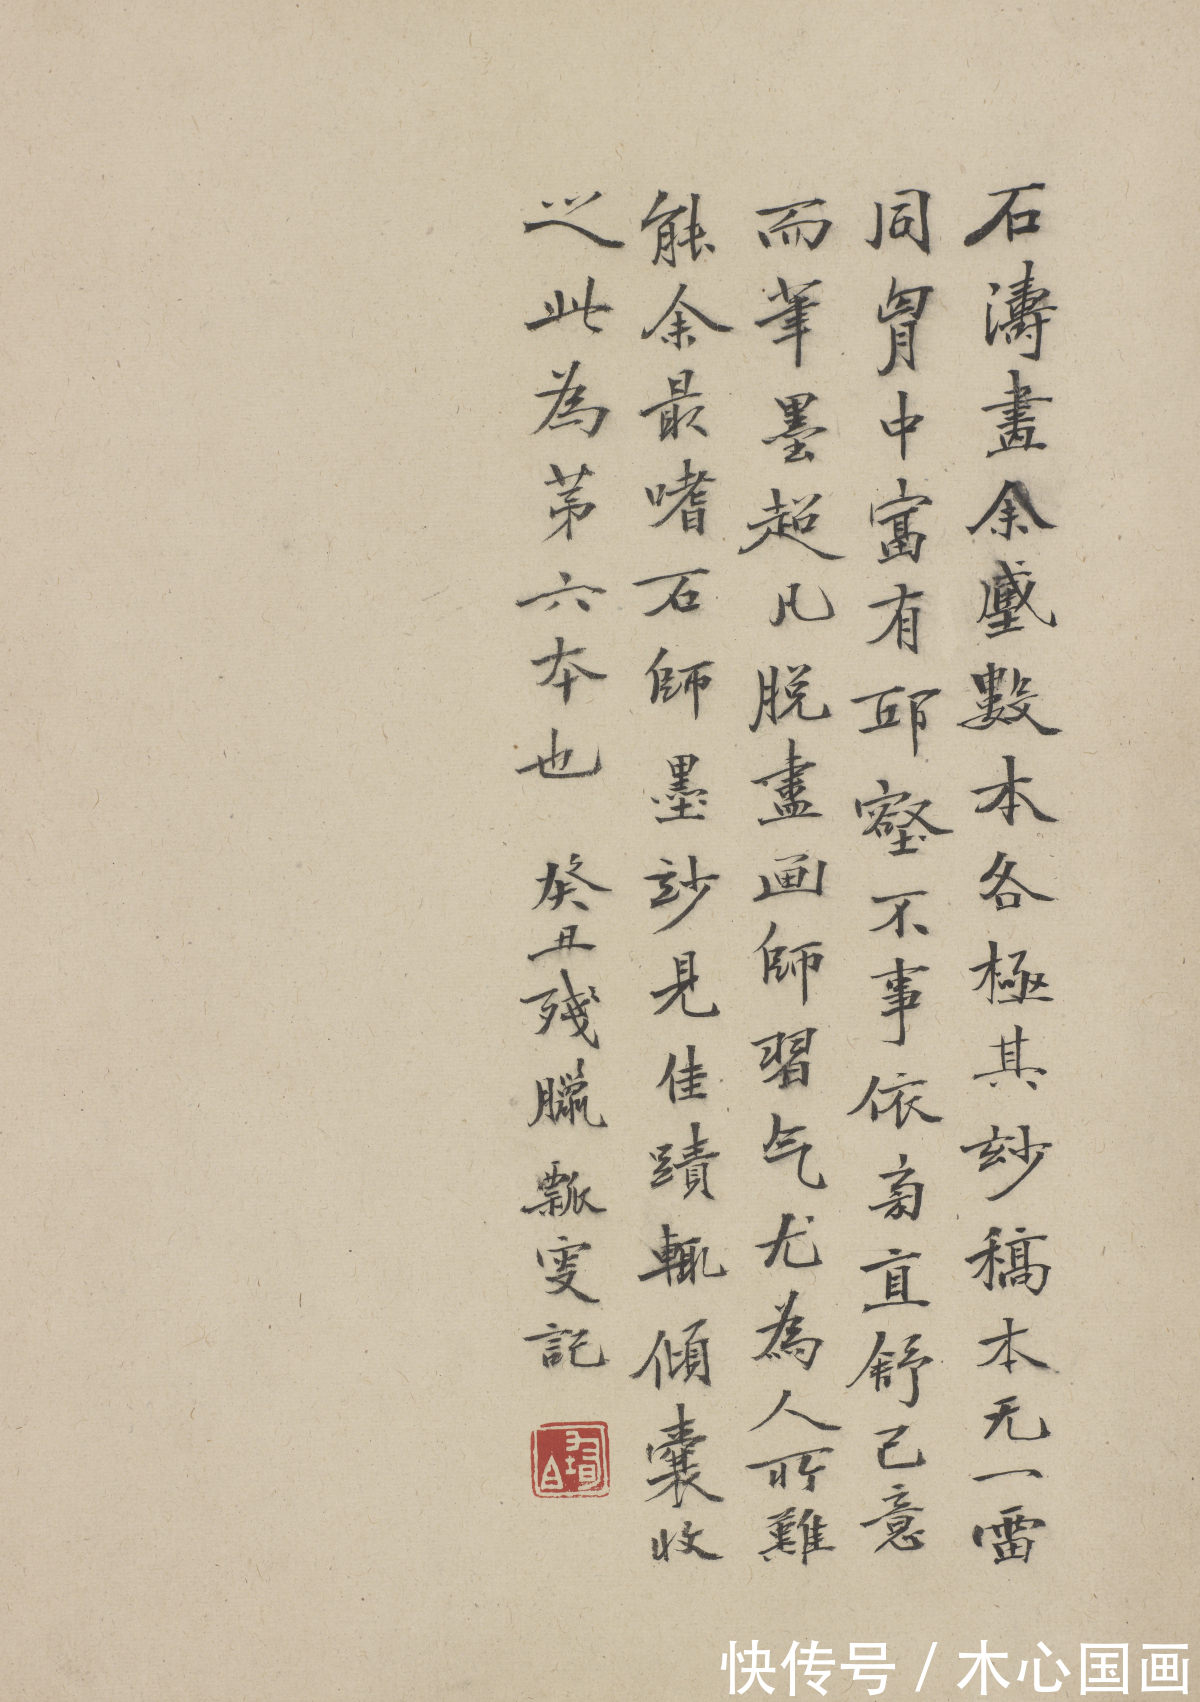 石濤畫余蓄數本各極其玅稿本无一雷
同胷中富有邱壑不事依㫄直舒己意
而筆墨超凡脱盡画師習气尤為人所難
能余最嗜石師墨玅見佳蹟輒傾囊收
之此為苐六本也 癸丑殘臘瓢叟記
快传号 / 木心国画